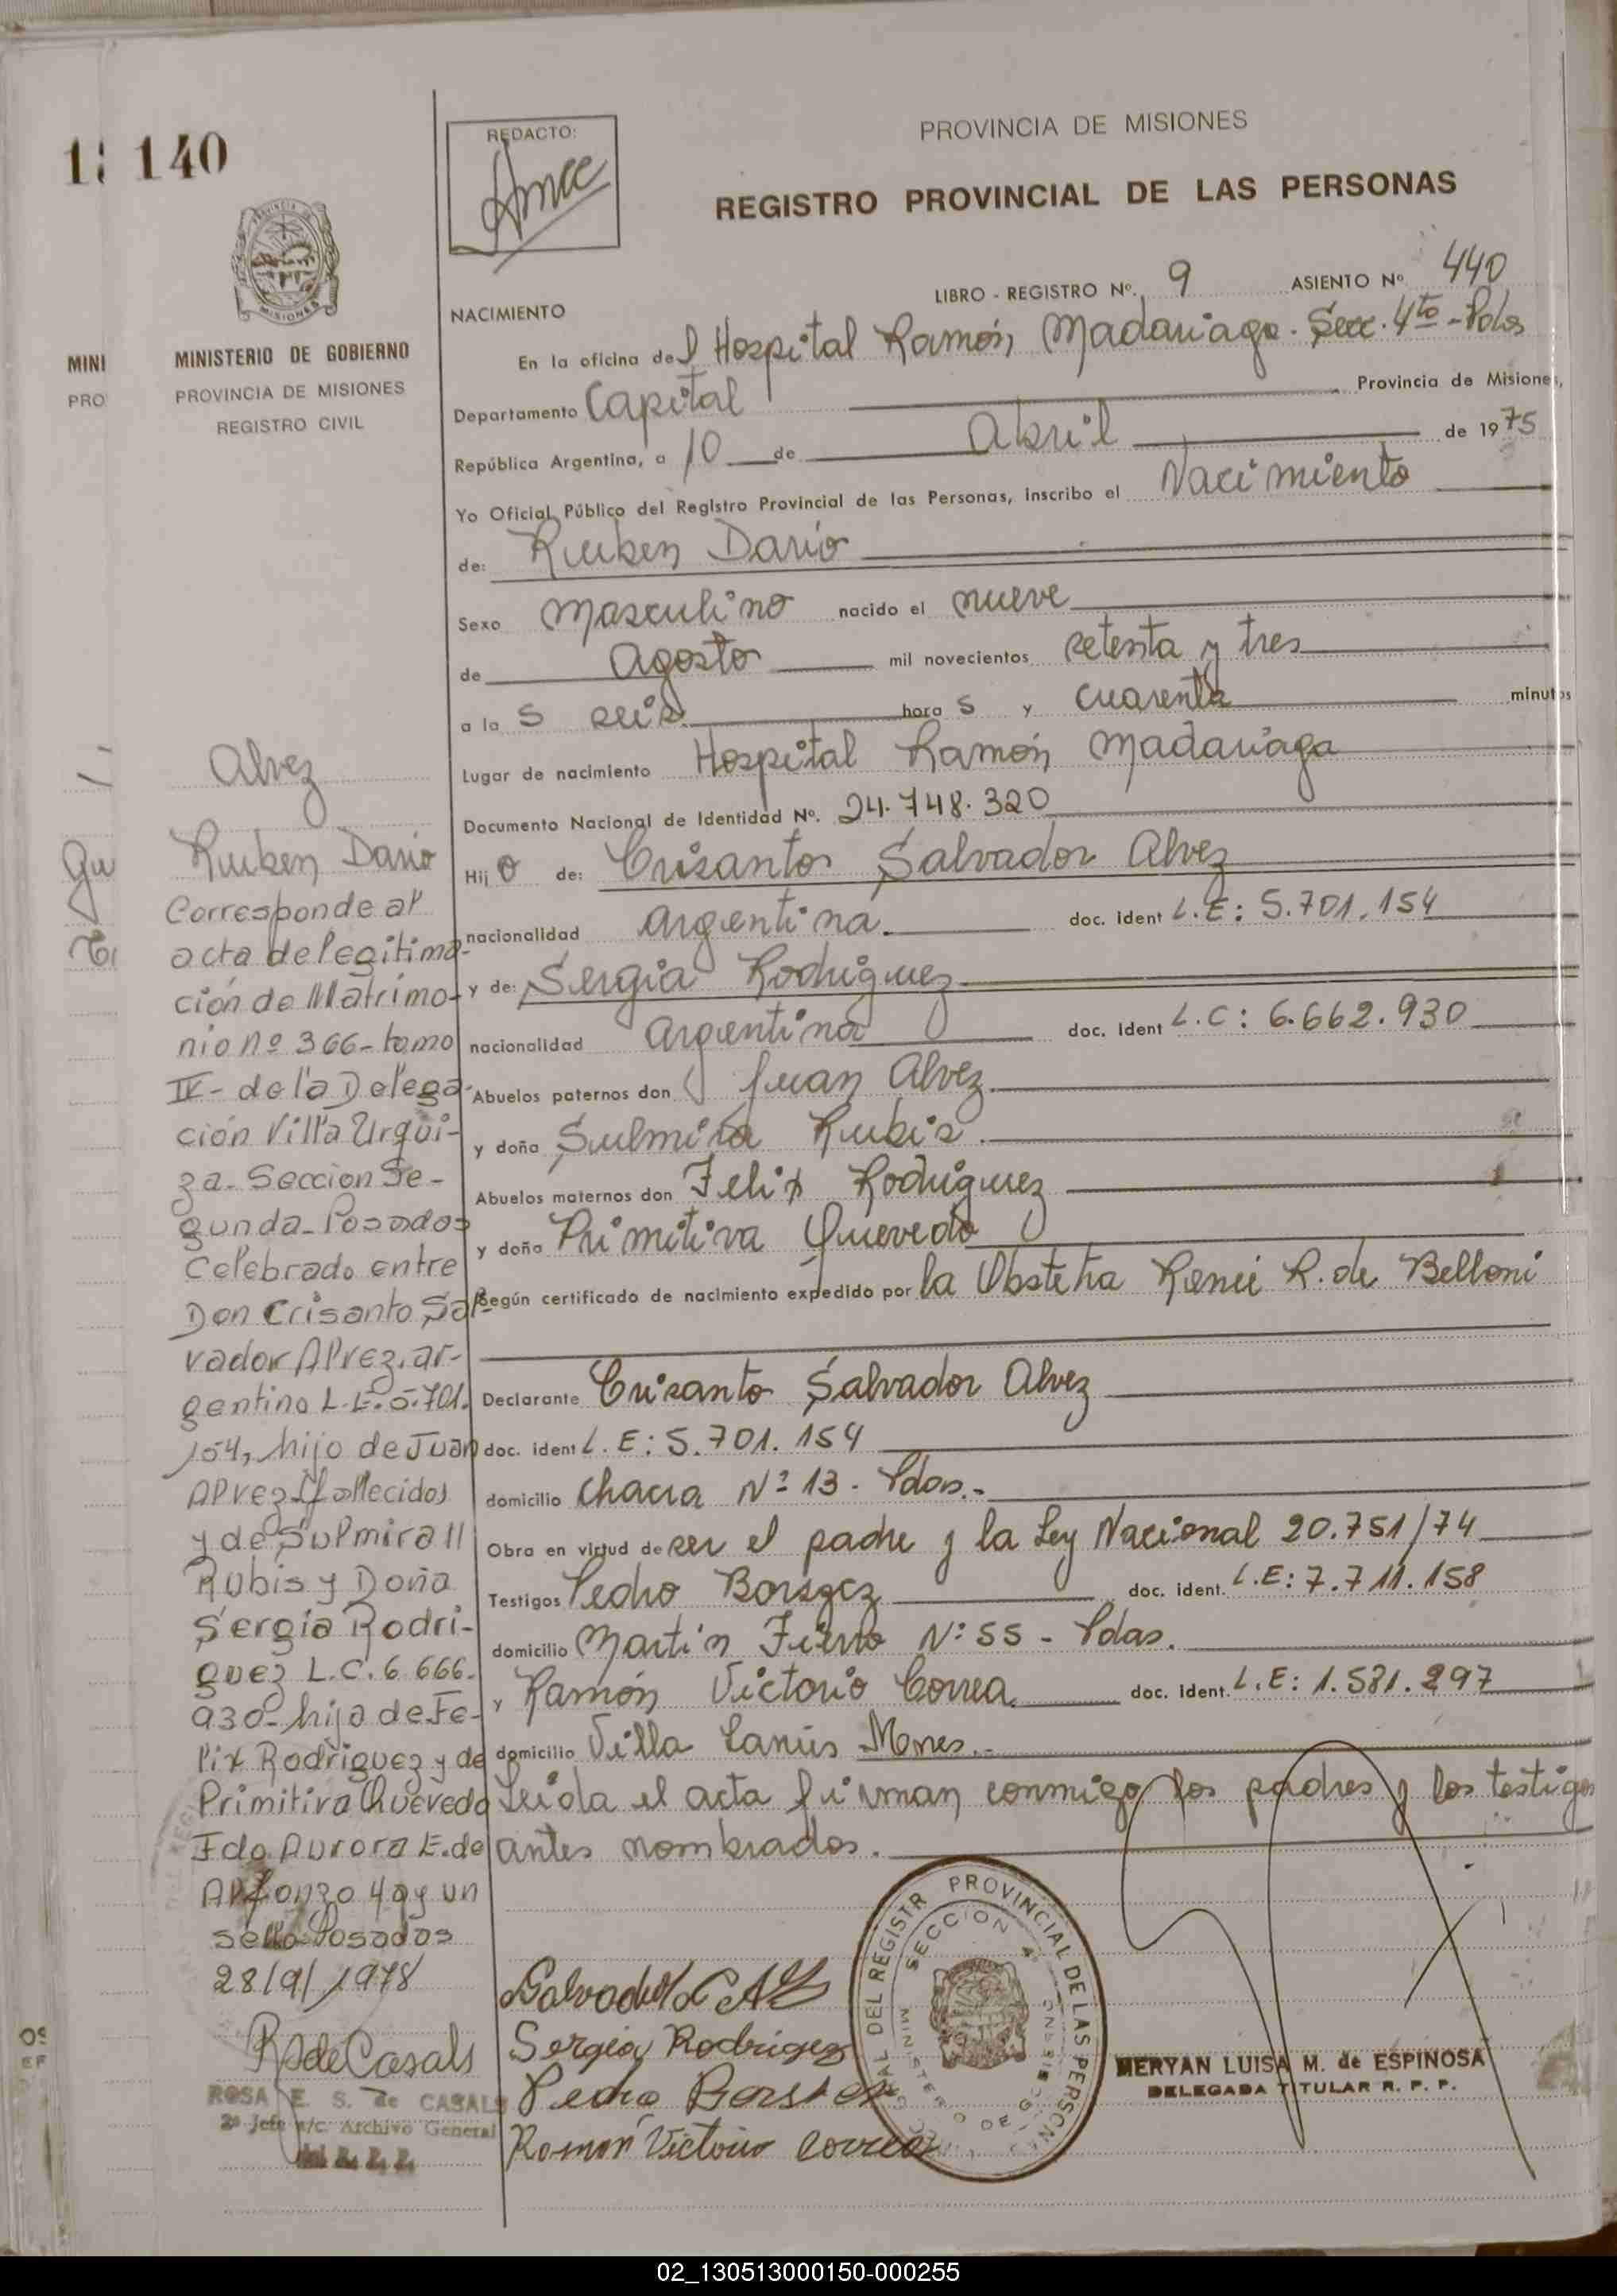 140
REDACTO:
PROVINCIA DE MISIONES
REGISTRO PROVINCIAL DE LAS PERSONAS
LIBRO - REGISTRO Nº. 9 ASIENTO Nº 440
NACIMIENTO
En la oficina del Hospital Ramón Madariaga - Secc. 4ta - Pdas
Departamento Capital Provincia de Misiones,
República Argentina, a 10 de Abril de 1975
Yo Oficial Público del Registro Provincial de las Personas, inscribo el Nacimiento
de: Ruben Dario
Sexo masculino nacido el nueve
de agosto mil novecientos setenta y tres
a la s seis hora s y cuarenta minutos
Lugar de nacimiento Hospital Ramón Madariaga
Documento Nacional de Identidad Nº. 24.748.320
Hijo de: Crisanto Salvador Alvez
nacionalidad argentina. doc. ident L.E: 5.701.154
y de: Sergia Rodriguez
nacionalidad argentina doc. ident L.C: 6.662.930
Abuelos paternos don Juan Alvez.
y doña Sulmira Rubis.
Abuelos maternos don Felix Rodriguez
y doña Primitiva Quevedo
Según certificado de nacimiento expedido por la Obstetra Reneé R. de Belloni
Declarante Crisanto Salvador Alvez
doc. ident L.E: 5.701.154
domicilio Chacra Nº 13 - Pdas.-
Obra en virtud de ser el padre y la Ley Nacional 20.751/74
Testigos Pedro Borszcz doc. ident. L.E: 7.711.158
domicilio Martín Fierro Nº 55 - Pdas.
y Ramón Victorio Correa. doc. ident. L.E: 1.581.297
domicilio Villa Lanús Mnes.-
Leida el acta firman conmigo los padres y los testigos
antes nombrados.
Sergia Rodriguez
Ramón Victorio Correa
DEL REGISTR PROVINCIAL DE LAS PERSON
SECCION 4ª
MERYAN LUISA M. de ESPINOSA
DELEGADA TITULAR R. P. P.
MISIONES
MINISTERIO DE GOBIERNO
PROVINCIA DE MISIONES
REGISTRO CIVIL
Alvez
Ruben Dario
Corresponde al
acta de legitima-
ción de Matrimo-
nio nº 366-tomo
IV- de la Delega-
ción Villa Urqui-
za- Seccion Se-
gunda-Posadas
Celebrado entre
Don Crisanto Sal-
vador Alvez, ar-
gentino L.E. 5.701.
154, hijo de Juan
Alvez (fallecido)
y de Sulmira
Rubis y Doña
Sergia Rodri-
guez L.C. 6.666.
930- hija de Fe-
lix Rodriguez y de
Primitiva Quevedo
Fdo Aurora E. de
Alfonzo Hay un
sello Posadas
28/9/1978
R de Casals
ROSA E. S. de CASALS
2º Jefe a/c Archivo General
del R. P. P.
MINI
PRO
02_130513000150-000255